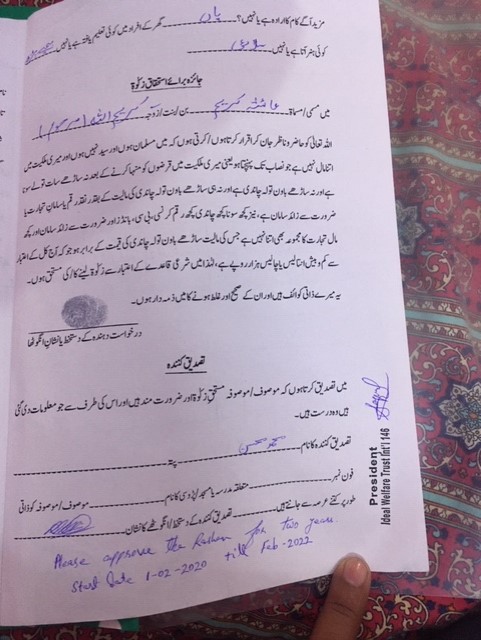 مزید آگے کام کا ارادہ ہے یا نہیں؟ ہاں گھر کے افراد میں کوئی تعلیم یافتہ ہے یا نہیں
کوئی ہنر آتا ہے یا نہیں۔
جائزہ برائے استحقاق زکوٰۃ
میں مسمی / مسماۃ عائشہ کریم بن / بنت / زوجہ کریم اللہ
اللہ تعالی کو حاضر و ناظر جان کر اقرار کرتا ہوں / کرتی ہوں کہ میں مسلمان ہوں اور سید نہیں ہوں اور میری ملکیت میں
اتنا مال نہیں ہے جو نصاب تک پہنچتا ہو یعنی میری ملکیت میں قرضوں کو منہا کرنے کے بعد نہ ساڑھے سات تولے سونا
ہے اور نہ ساڑھے باون تولہ چاندی ہے اور نہ ہی ساڑھے باون تولہ چاندی کی مالیت کے بقدر نقد رقم یا سامان تجارت یا
ضرورت سے زائد سامان ہے، نیز کچھ سونا کچھ چاندی کچھ رقم کرنسی، پی سی، بانڈز اور ضرورت سے زائد سامان اور کچھ
مال تجارت کا مجموعہ بھی اتنا نہیں ہے جس کی مالیت ساڑھے باون تولہ چاندی کی قیمت کے برابر ہو جو کہ آج کل کے اعتبار
سے کم و بیش انتالیس یا چالیس ہزار روپے ہے، لہٰذا میں شرعی قاعدے کے اعتبار سے زکوٰۃ لینے کا / کی مستحق ہوں۔
یہ میرے ذاتی کوائف ہیں اور ان کے صحیح اور غلط ہونے کا میں ذمہ دار ہوں۔
درخواست دہندہ کے دستخط یا نشان انگوٹھا
تصدیق کنندہ
میں تصدیق کرتا ہوں کہ موصوف / موصوفہ مستحق زکوٰۃ اور ضرورت مند ہیں اور اس کی طرف سے جو معلومات دی گئی
ہیں وہ درست ہیں۔
تصدیق کنندہ کا نام محمد محسن پتہ
فون نمبر متعلقہ مدرسہ یا مسجد / پڑوسی کا نام موصوف / موصوفہ کو ذاتی
طور پر کتنے عرصہ سے جانتے ہیں تصدیق کنندہ کے دستخط / انگوٹھے کا نشان
Please approve the Rashan for two years.
Start Date 1-02-2020 till Feb-2022
President
Ideal Welfare Trust Int'l 146